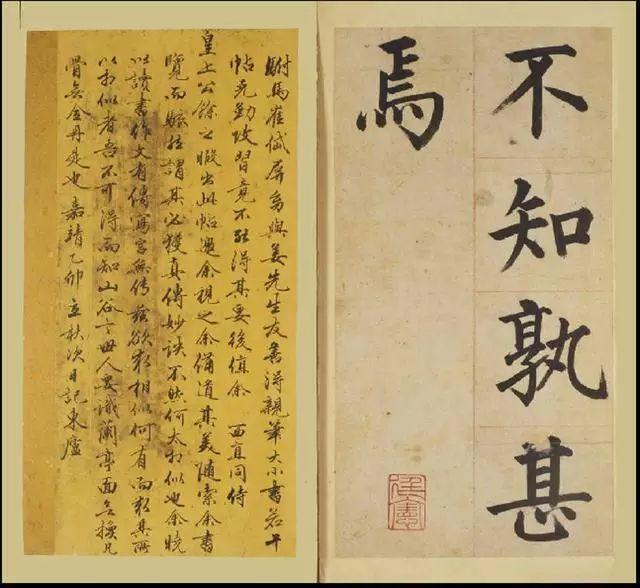 不知孰甚
焉
廷憲
駙馬崔岱屏翁與姜先生友善得親筆大小書若干
帖 攻習竟不能得其要後值余 西直同侍
皇上公餘之暇出此帖過余視之余備道其美隨索余書
覽而 謂其必獲真傳妙訣不然何太相似也余曉
以讀書作文有傳寫字無傳茲欲求相似何有而求其所
以相似者吾不可得而知山谷云世人 識蘭亭面 換凡
骨無金丹是也 嘉靖乙卯立秋次日記東廬